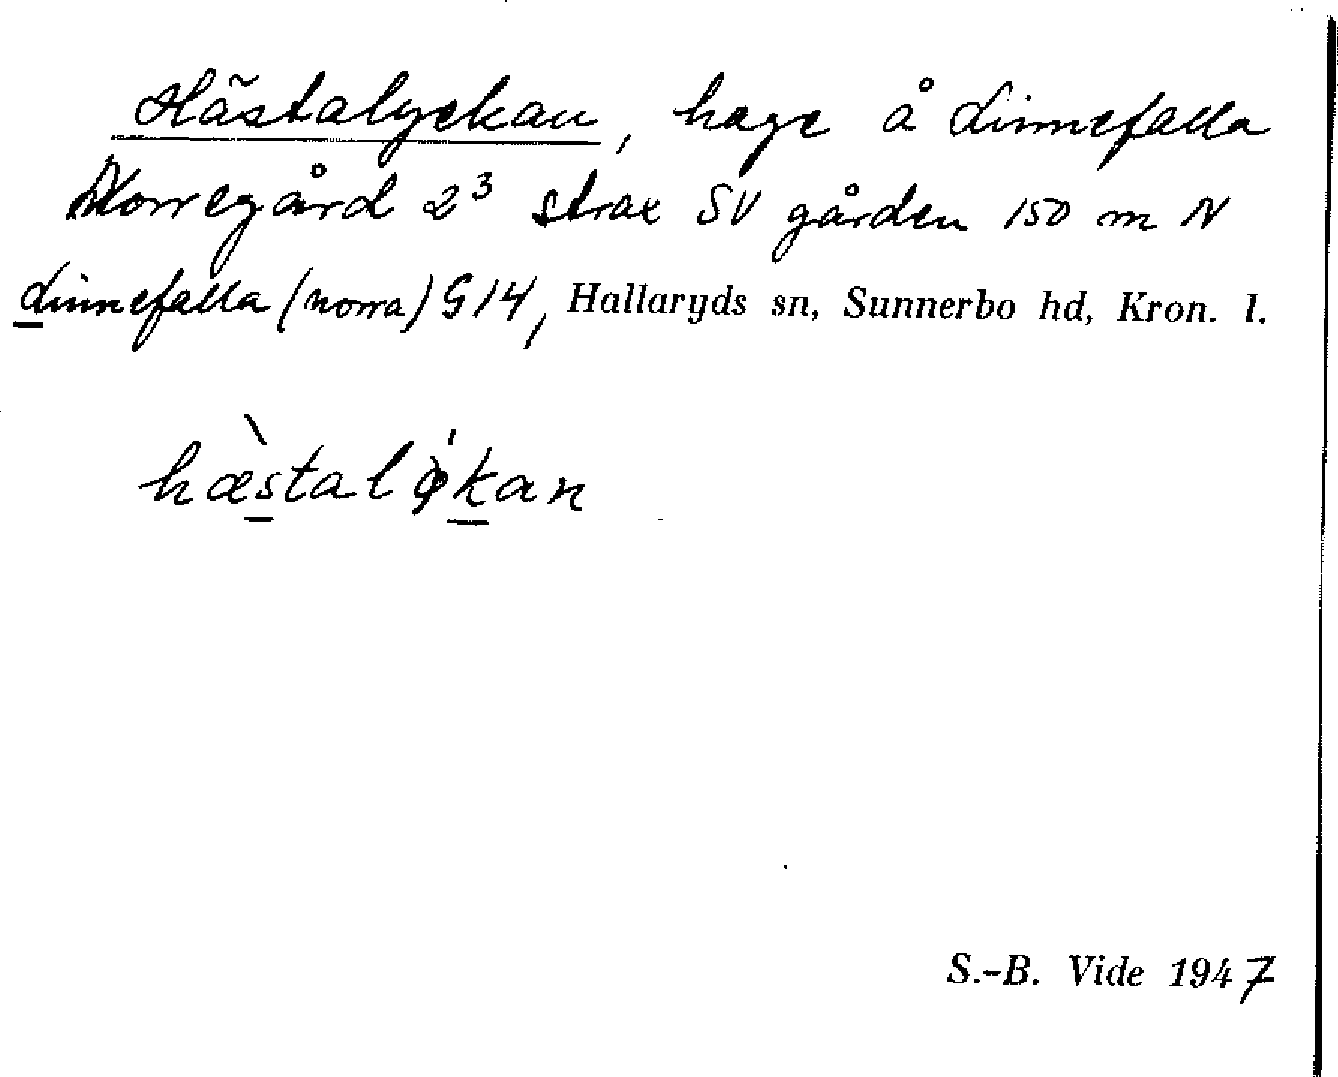 Hästalyckan, hage å Linnefalla
Norregård 2³ strax SV gården 150 m N
Linnefalla (norra) G14, Hallaryds sn, Sunnerbo hd, Kron. l.
hæ̀stalǿkan
S.-B. Vide 1947